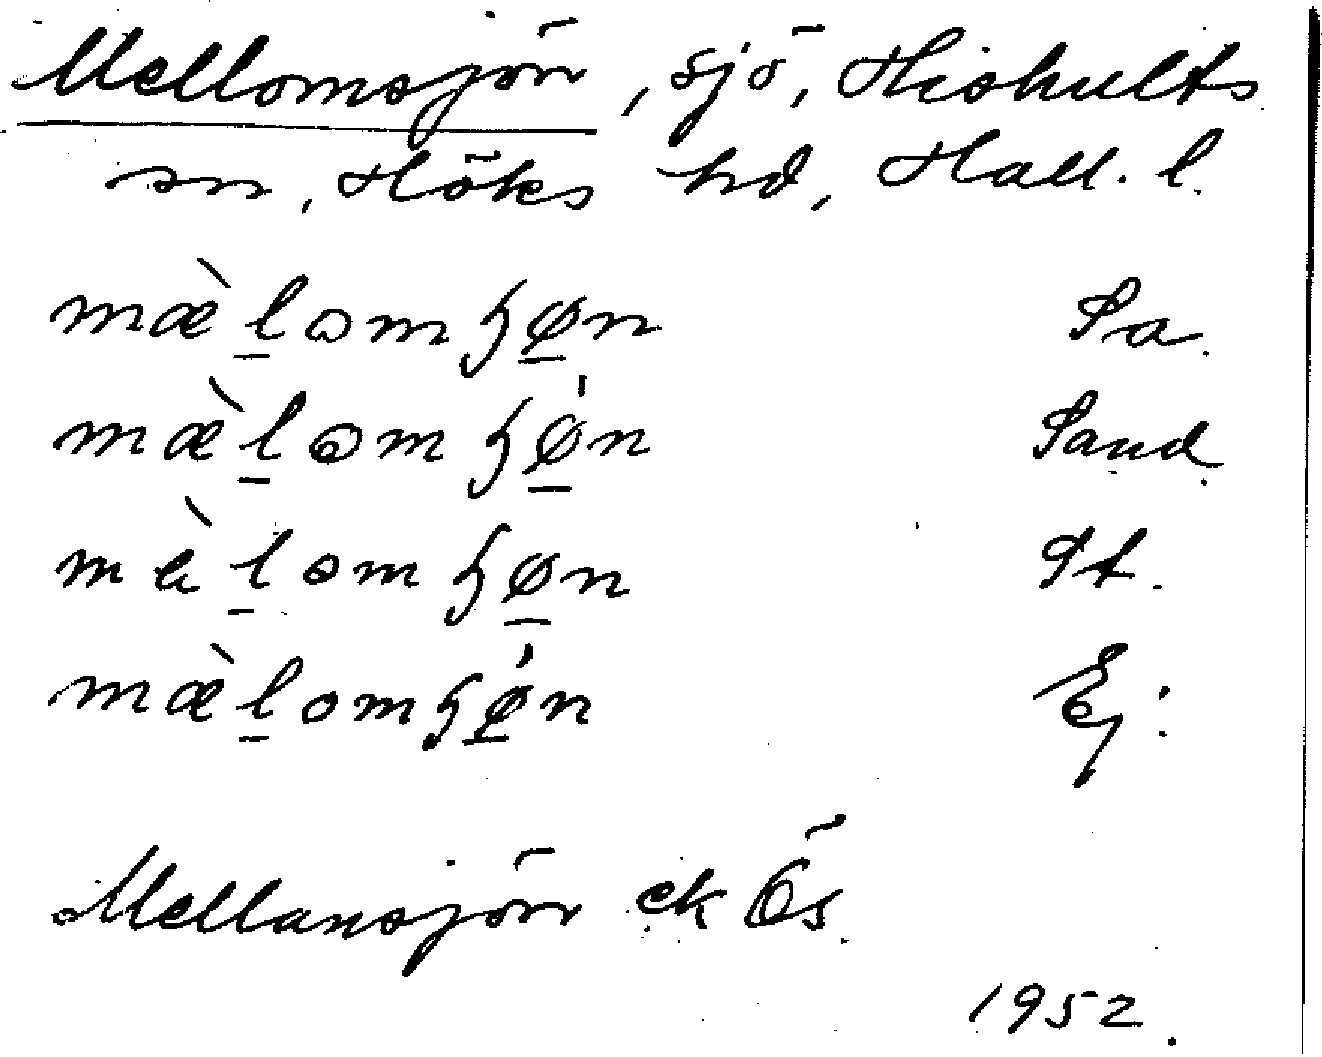 Mellomsjön, sjö, Hishults
sn, Höks hd, Hall. l.
mæ̀l̲ɷmɧø̲n Sa.
mæ̀l̲ɷmɧǿ̲n Sand.
mὲl̲omɧø̲n
mæ̀l̲omɧǿ̲n Ej.
Mellansjön ek Ös.
1952.